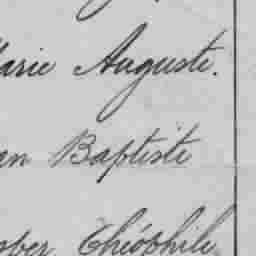 arie Auguste.
an Baptiste
sper Théophile